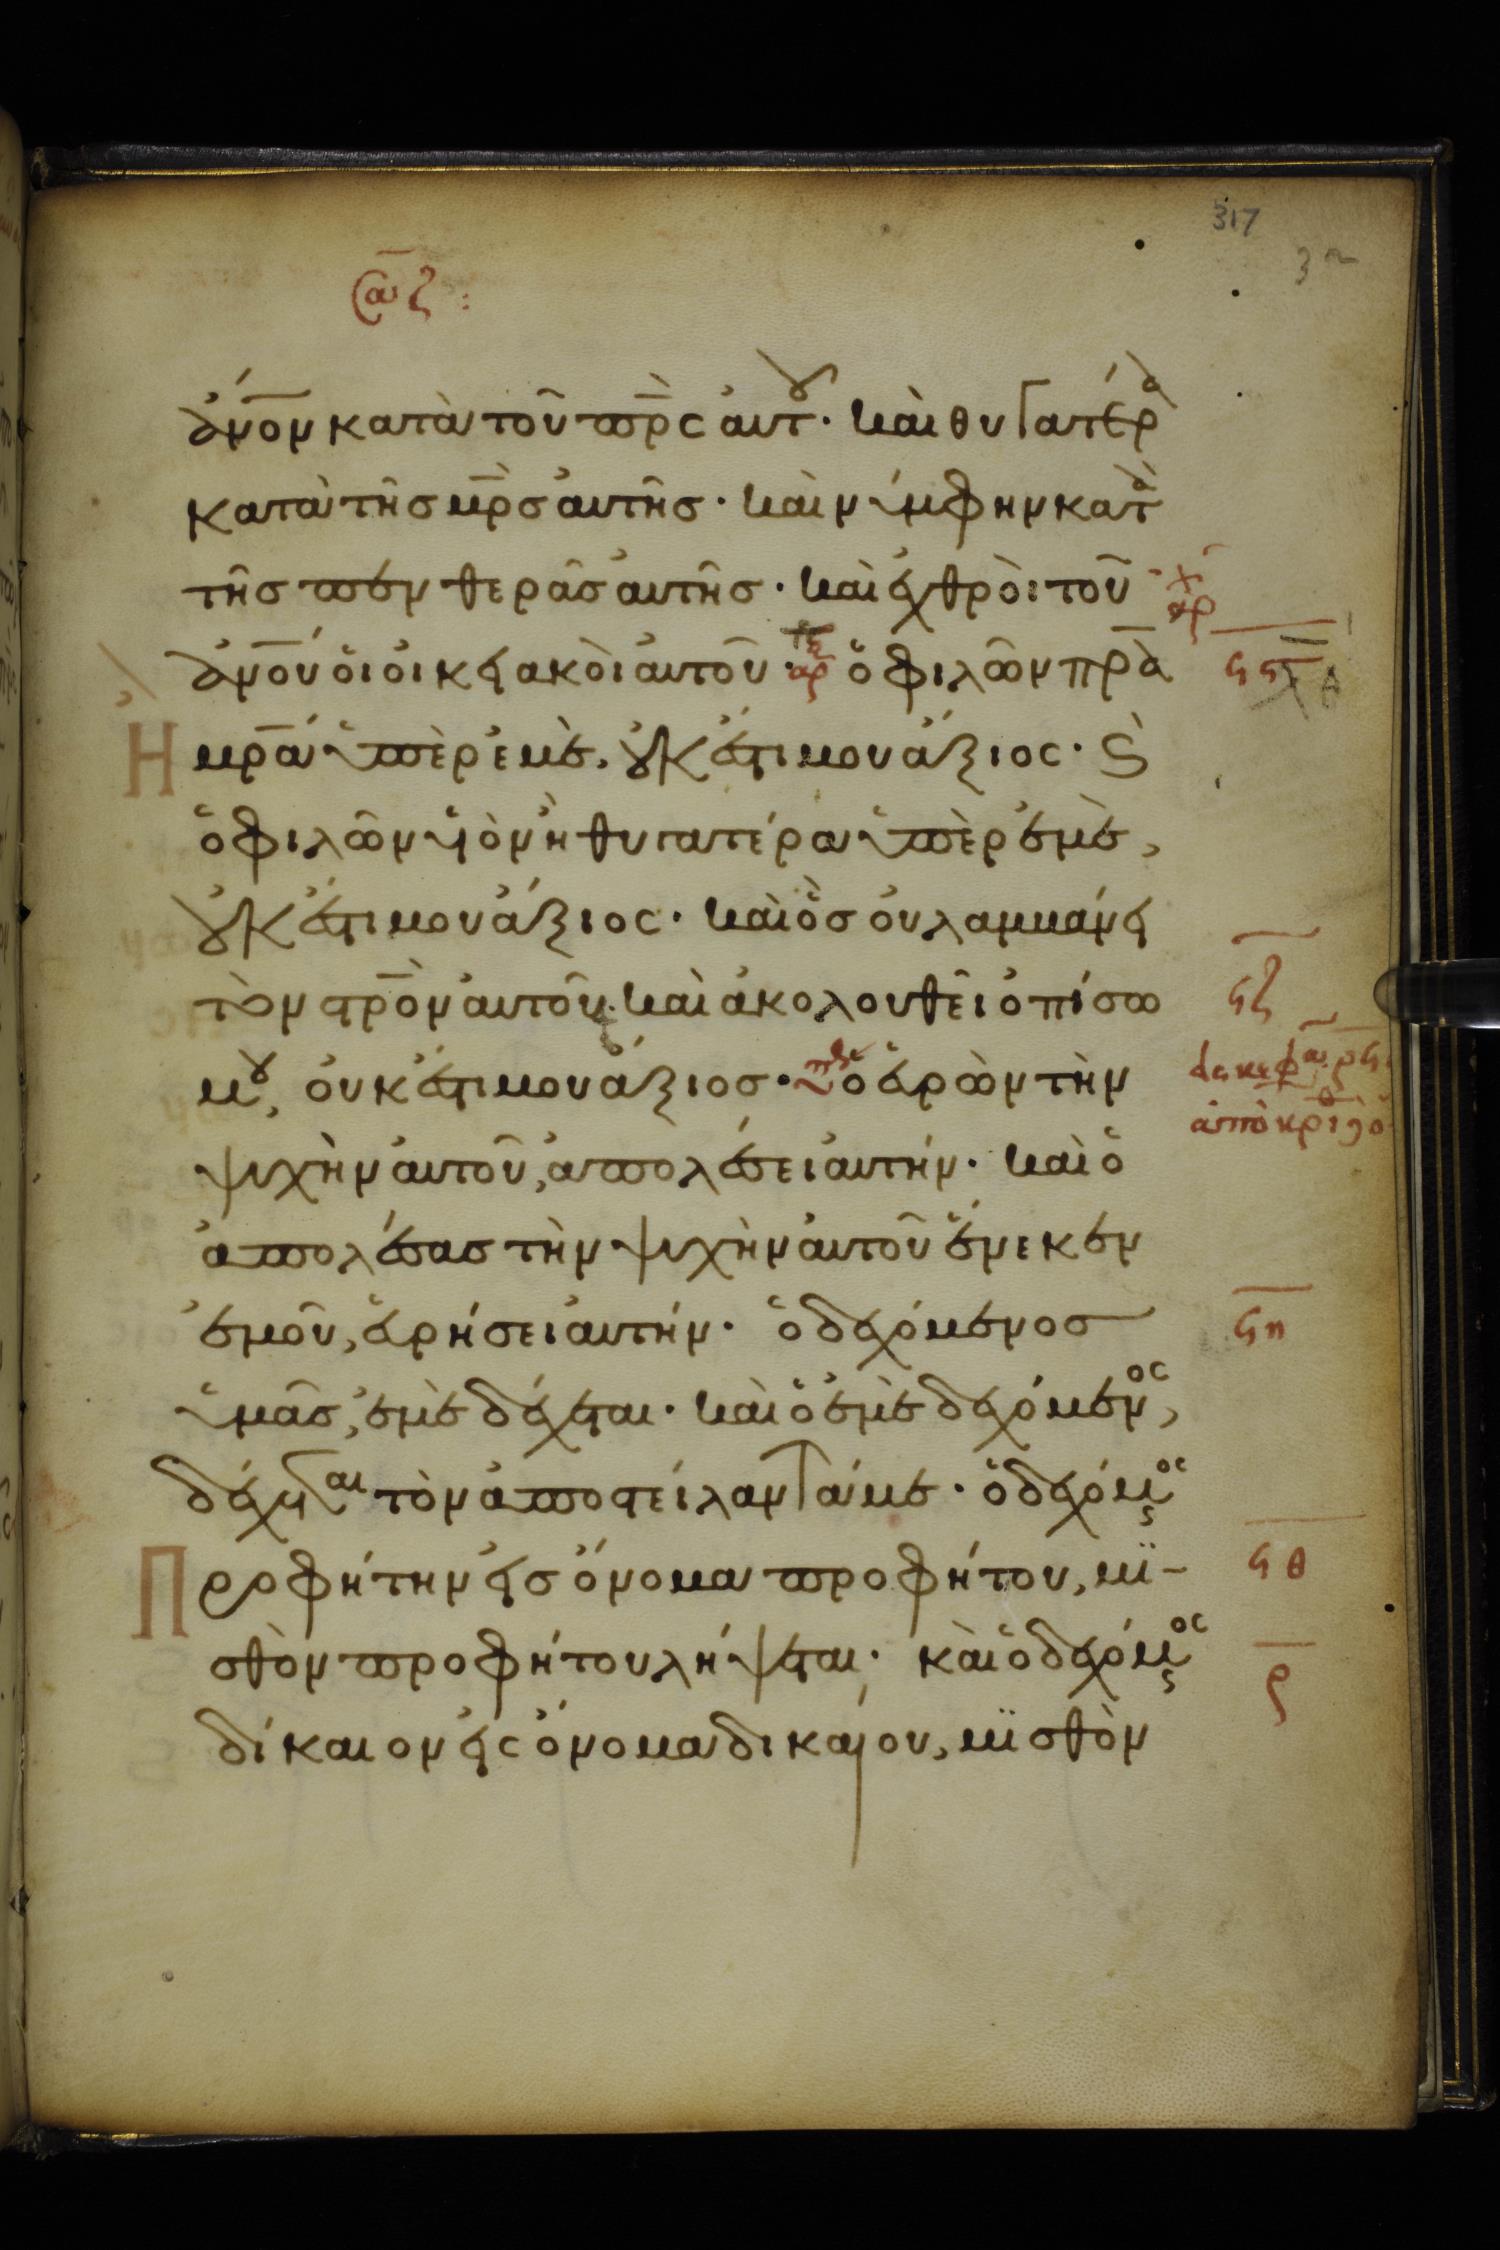 317
ἄνον κατὰ τοῦ πρ̅ς αὐτοῦ· καὶ θυγατέρα
κατὰ τῆς μρ̅ς αὐτῆς· καὶ νύμφην κατὰ
τῆς πενθερᾶς αὐτῆς· καὶ ἐχθροὶ τοῦ
ἀνου οἱ οἰκειακοὶ αὐτοῦ· ὁ φιλῶν πρα
Ἢ μρα ὑπὲρ ἐμὲ, οὐκ ἔστι μου ἄξιος· ϗ
ὁ φιλῶν υἱὸν ἢ θυγατέρα ὑπὲρ ἐμὲ,
οὐκ ἔστι μου ἄξιος· καὶ ὃς οὐ λαμβάνει
τὸν στρον αὐτοῦ· καὶ ἀκολουθεῖ ὀπίσω
μου, οὐκ ἔστι μου ἄξιος· ὁ εὑρὼν τὴν
ψυχὴν αὐτοῦ, ἀπολέσει αὐτήν· καὶ ὁ
ἀπολέσας τὴν ψυχὴν αὐτοῦ ἕνεκεν
ἐμοῦ, εὑρήσει αὐτήν· ὁ δεχόμενος
ὑμᾶς, ἐμὲ δέχεται· καὶ ὁ ἐμὲ δεχόμενος,
δέχεται τὸν ἀποστείλαντά με· ὁ δεχόμενος
Προφήτην εἰς ὄνομα προφήτου, μι-
σθὸν προφήτου λήψεται· καὶ ὁ δεχόμενος
δίκαιον εἰς ὄνομα δικαίου, μισθὸν
ϛϛ
ϛζ
ϛη
ϛθ
ρ